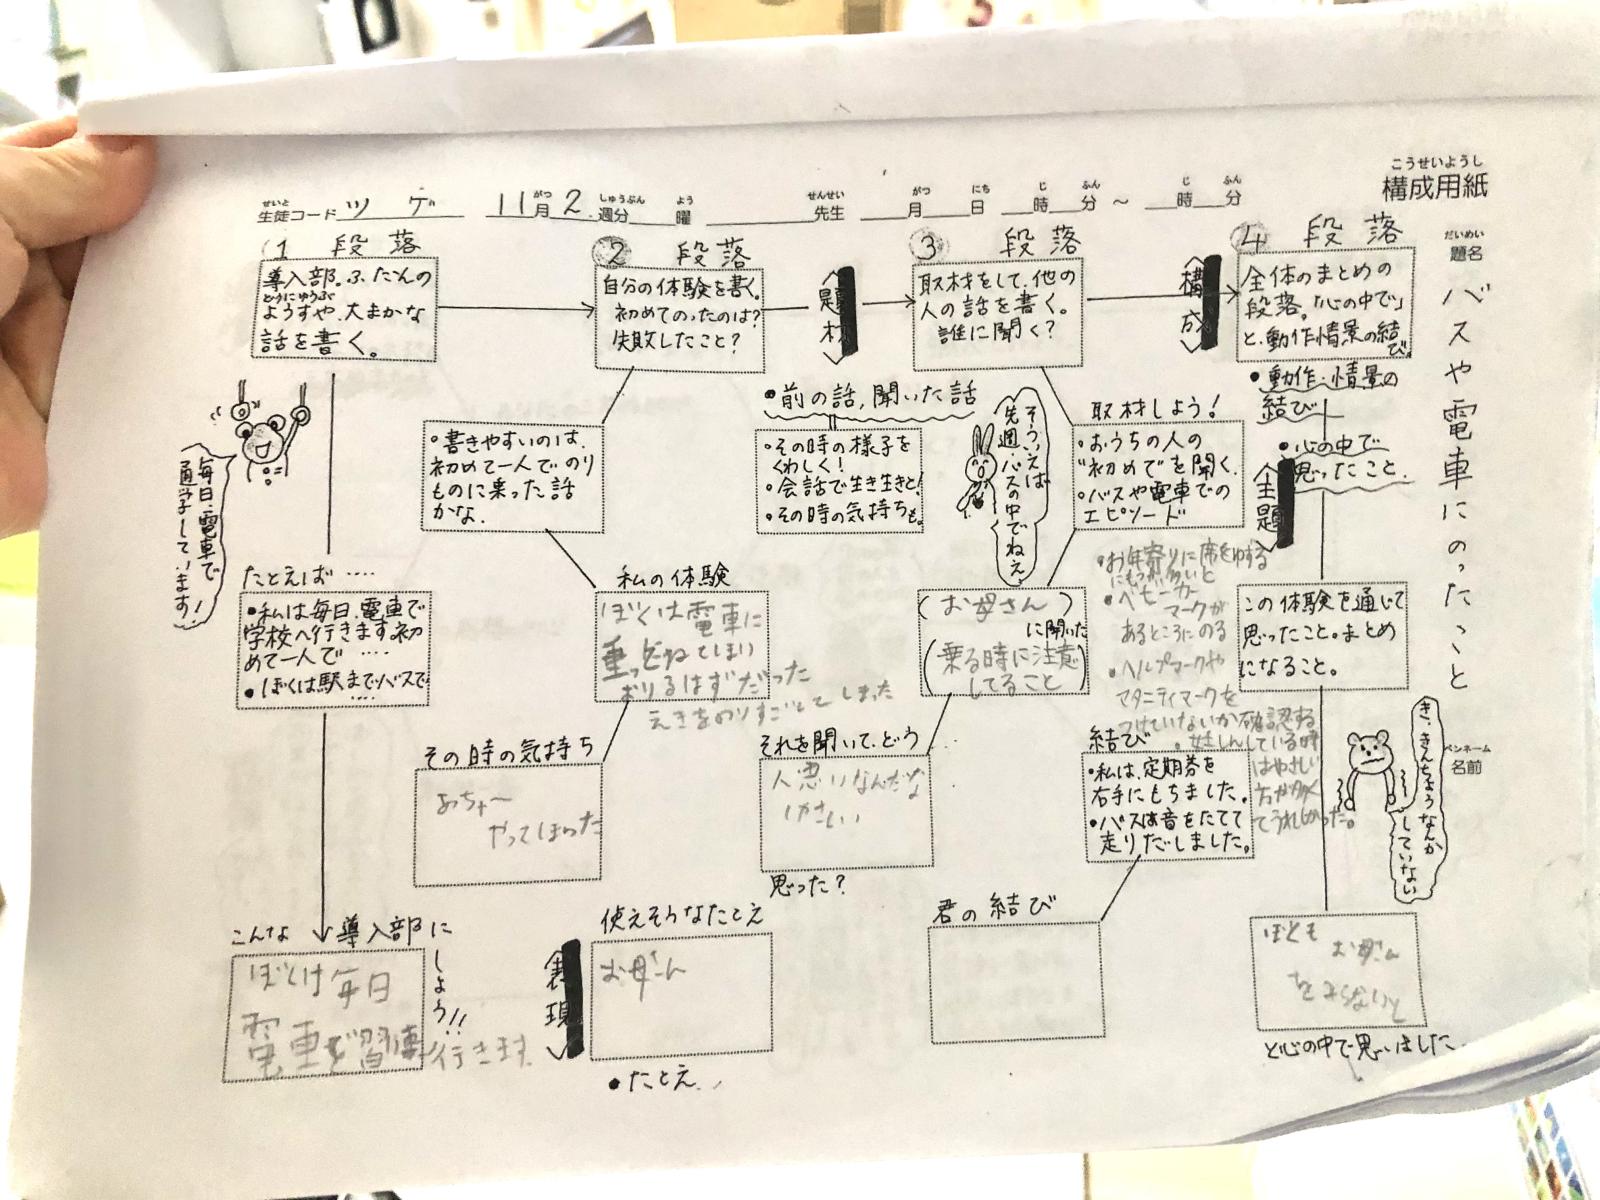 こうせいようし
構成用紙
せいと
生徒コード ツゲ 11月2週分 曜 先生 月 日 時 分 ～ 時 分
がつ しゅうぶん よう せんせい がつ にち じ ふん じ ふん
だいめい
題名
バスや電車にのったこと
ペンネーム
名前
1 段落
導入部。ふだんの
どうにゅうぶ
ようすや、大まかな
話を書く。
毎日、電車で
通学しています!
たとえば ‥‥
•私は毎日、電車で
学校へ行きます。初
めて一人で ‥‥
•ぼくは駅までバスで
‥‥
こんな 導入部に
しよう!!
ぼくは毎日
電車で習
行きます
2 段落
自分の体験を書く。
初めてのったのは?
失敗したこと?
•書きやすいのは、
初めて一人でのり
ものに乗った話
かな。
私の体験
ぼくは電車に
乗ってねてしまい
おりるはずだった
えきをのりすごしてしまった
その時の気持ち
あっちゃー
やってしまった
使えそうなたとえ
お母さん
•たとえ
表現
題材
•前の話、聞いた話
•その時の様子を
くわしく!
•会話で生き生きと!
•その時の気持ちも。
3 段落
取材をして、他の
人の話を書く。
誰に聞く?
そういえば
先週、バスの中でねえ、
取材しよう!
•おうちの人の
"初めて"を聞く。
•バスや電車での
エピソード
(お母さん)
に聞いた
(乗る時に注意
してること)
•お年寄りに席をゆずる
にもつが多いと
•ベビーカー
マークが
あるところにのる
•ヘルプマークや
マタニティマークを
つけていないか確認する
•妊しんしている時
はやさしい
方が多く
てうれしかった。
それを聞いて、どう
人思いなんだな
やさしい
思った?
結び
•私は、定期券を
右手にもちました。
•バスは音をたてて
走りだしました。
君の結び
構成
4 段落
全体のまとめの
段落。「心の中で」
と、動作情景の結
び。
•動作・情景の
結び
•心の中で
思ったこと。
主題
この体験を通じて
思ったこと。まとめ
になること。
き、きんちょうなんか
していない
ぼくも
お母さん
と心の中で思いました。